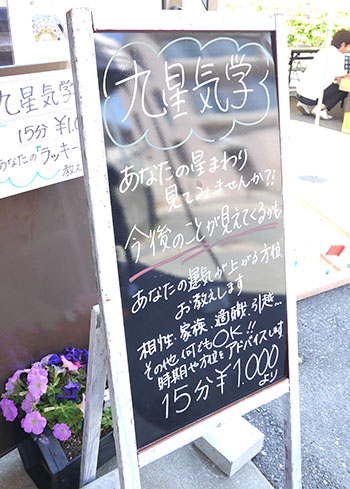 九星気学
15分 ¥1.0
あなたの「ラッキー
教え
九星気学
あなたの星まわり
見てみませんか?!
今後のことが見えてくるかも
あなたの運気が上がる方位
お教えします
相性.家族.適職.引越...
その他 何でもOK!!
時期や方位をアドバイスします
15分¥1.000
より